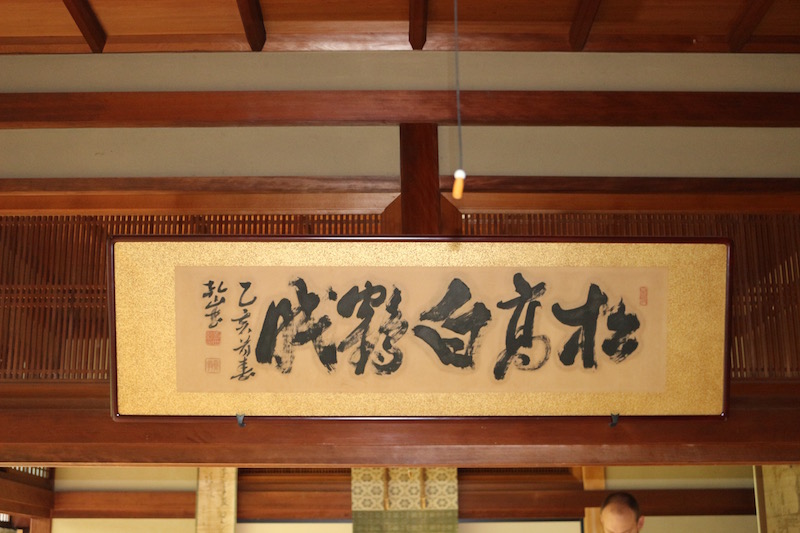 松高白鶴眠
乙亥首春